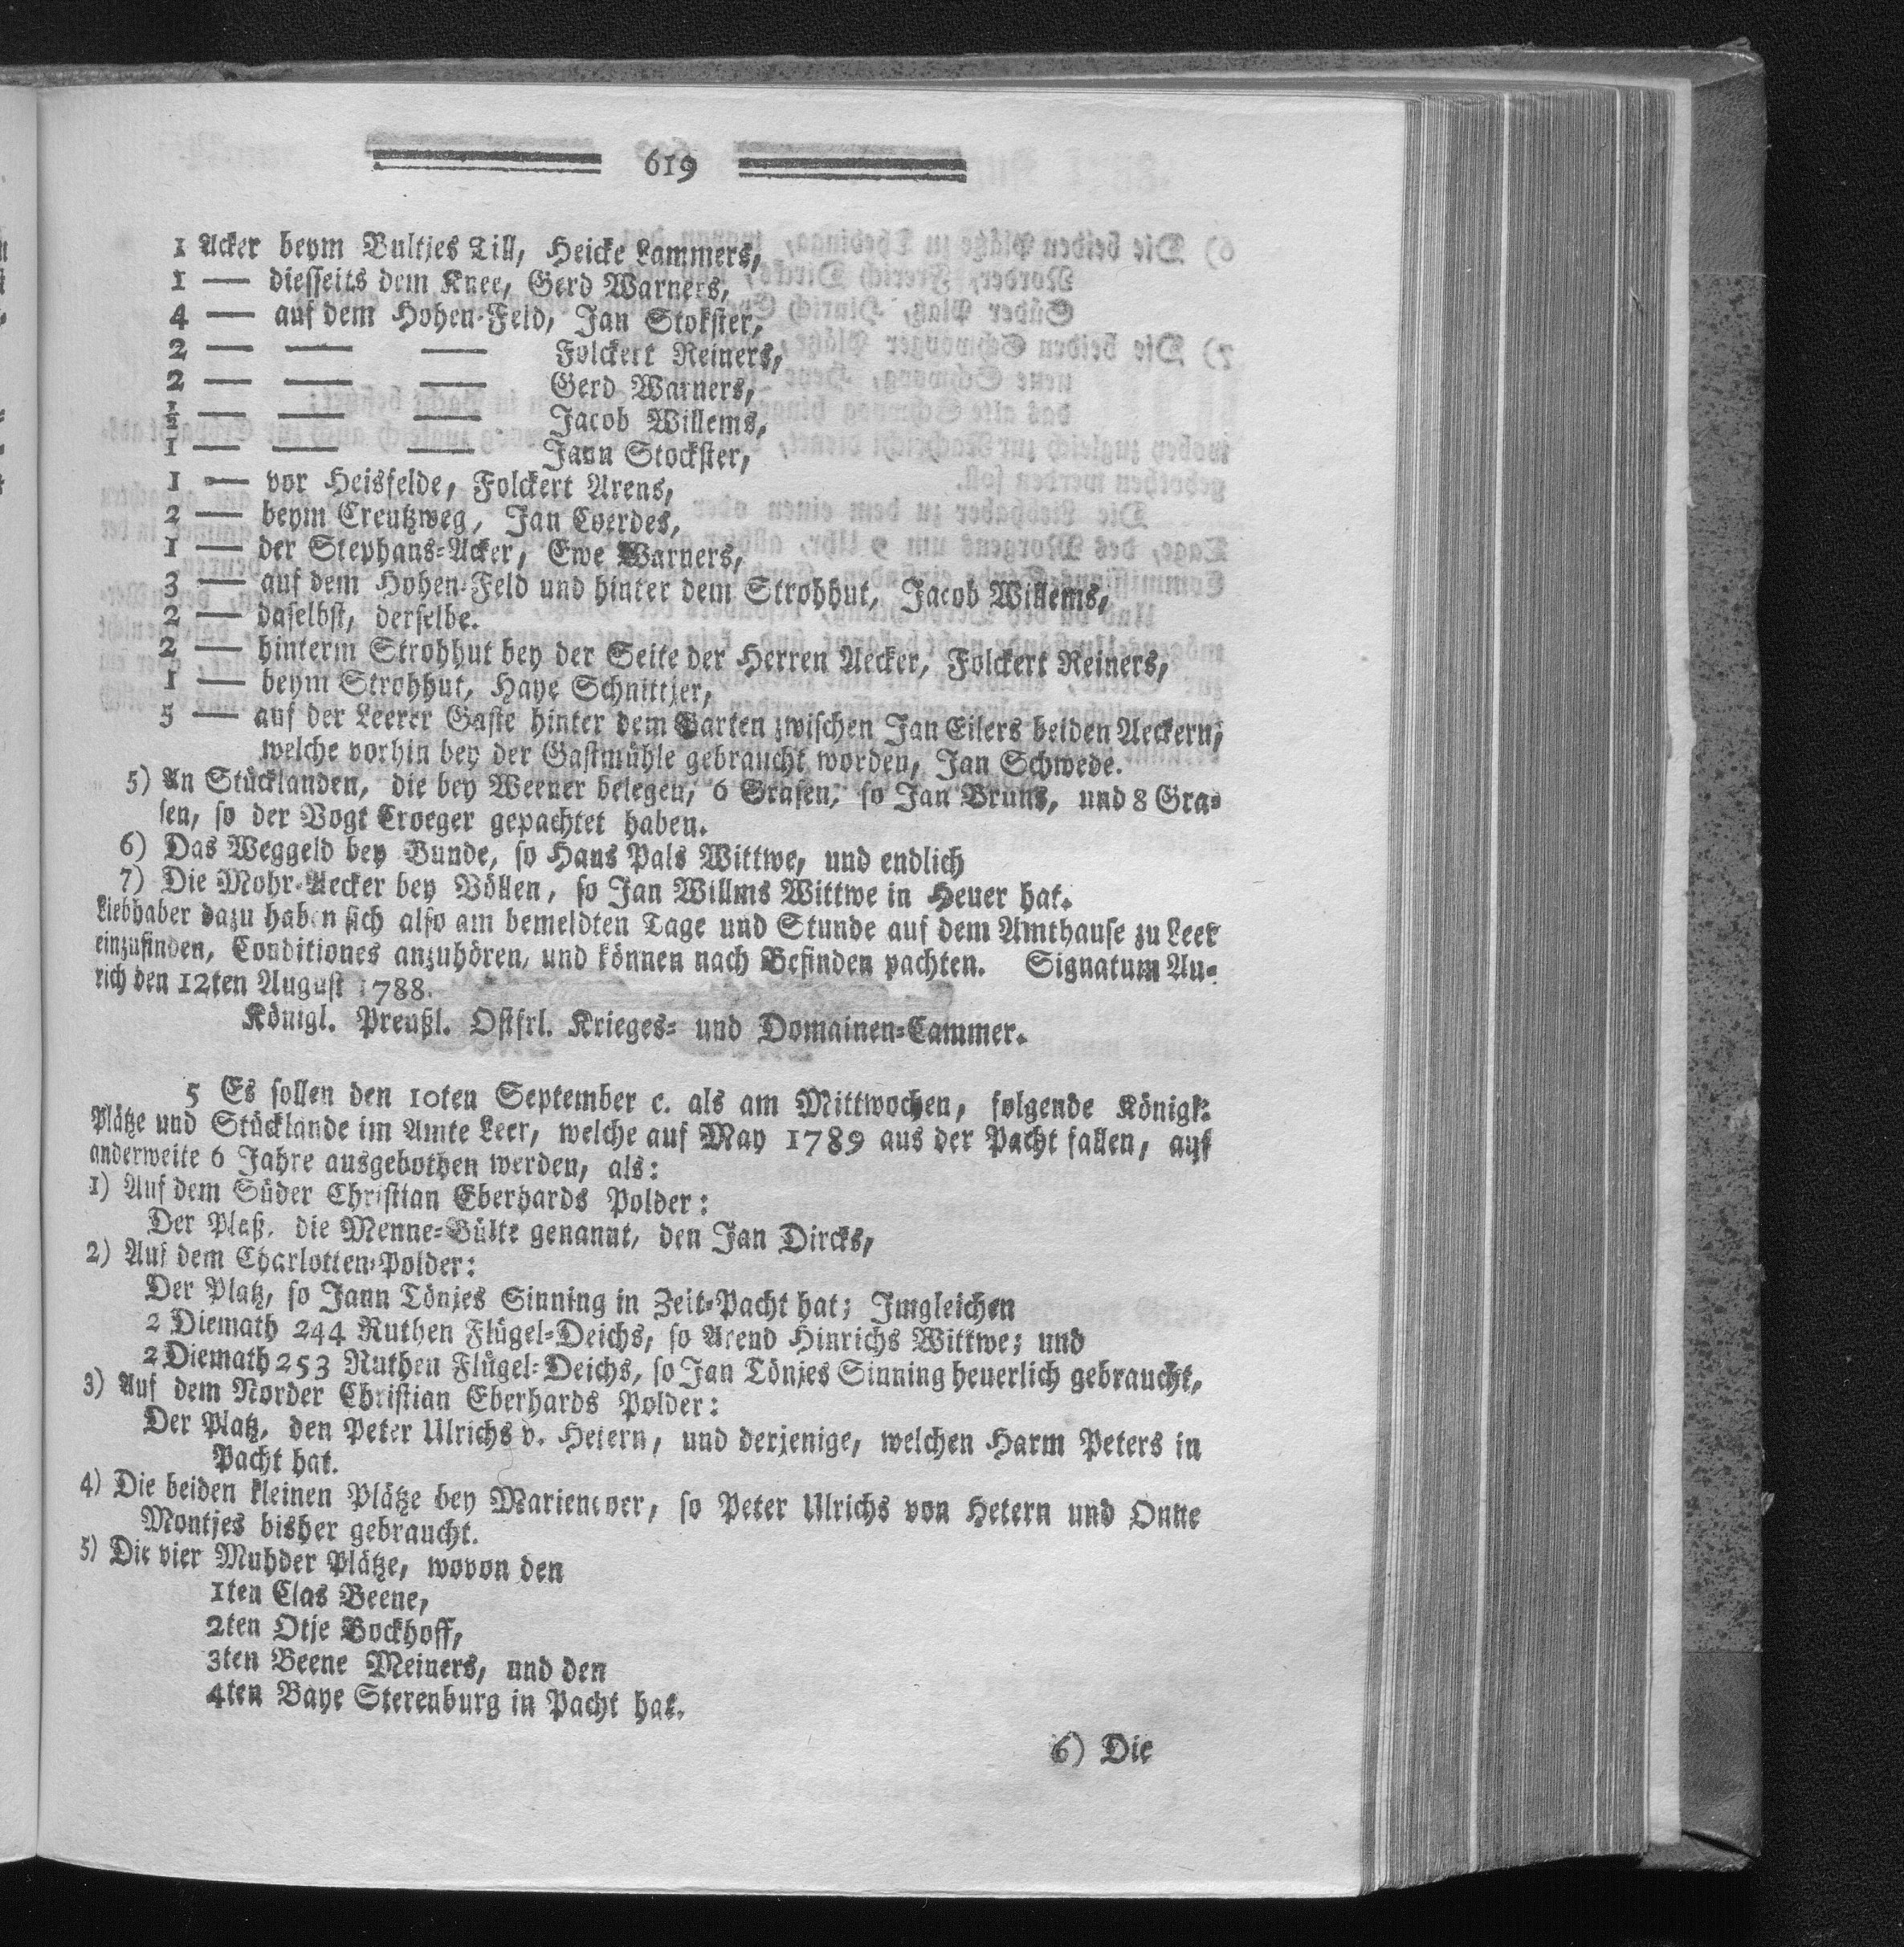 619
1 Acker beym Bultjes Till, Heicke Lammers,
1 — diesseits dem Knee, Gerd Warners,
4 — auf dem Hohen-Feld, Jan Stokster,
2 — — — Folckert Reiners,
2 — — — Gerd Warners,
½ — — — Jacob Willems,
1 — — — Jann Stockster,
1 — vor Heisfelde, Folckert Arens,
2 — beym Creutzweg, Jan Coerdes,
1 — der Stephans-Acker, Ewe Warners,
3 — auf dem Hohen-Feld und hinter dem Strohhut, Jacob Willems,
2 — daselbst, derselbe.
2 — hinterm Strohhut bey der Seite der Herren Aecker, Folckert Reiners,
1 — beym Strohhut, Haye Schnittjer,
5 — auf der Leerer Gaste hinter dem Garten zwischen Jan Eilers beiden Aeckern,
welche vorhin bey der Gastmühle gebraucht worden, Jan Schwede.
5) An Stücklanden, die bey Weener belegen, 6 Grasen, so Jan Bruns, und 8 Gra-
sen, so der Vogt Croeger gepachtet haben.
6) Das Weggeld bey Bunde, so Hans Pals Wittwe, und endlich
7) Die Mohr-Aecker bey Völlen, so Jan Willms Wittwe in Heuer hat.
Liebhaber dazu haben sich also am bemeldten Tage und Stunde auf dem Amthause zu Leer
einzufinden, Conditiones anzuhören, und können nach Befinden pachten. Signatum Au-
rich den 12ten August 1788.
Königl. Preußl. Ostfrl. Krieges- und Domainen-Cammer.
5 Es sollen den 10ten September c. als am Mittwochen, folgende Königl.
Plätze und Stücklande im Amte Leer, welche auf May 1789 aus der Pacht fallen, auf
anderweite 6 Jahre ausgebothen werden, als:
1) Auf dem Süder Christian Eberhards Polder:
Der Platz, die Menne-Bülte genannt, den Jan Dircks,
2) Auf dem Charlotten-Polder:
Der Platz, so Jann Tönjes Sinning in Zeit-Pacht hat; Imgleichen
2 Diemath 244 Ruthen Flügel-Deichs, so Arend Hinrichs Wittwe; und
2 Diemath 253 Ruthen Flügel-Deichs, so Jan Tönjes Sinning heuerlich gebraucht,
3) Auf dem Norder Christian Eberhards Polder:
Der Platz, den Peter Ulrichs v. Hetern, und derjenige, welchen Harm Peters in
Pacht hat.
4) Die beiden kleinen Plätze bey Mariencoer, so Peter Ulrichs von Hetern und Onne
Montjes bisher gebraucht.
5) Die vier Muhder Plätze, wovon den
1ten Clas Beene,
2ten Otje Bockhoff,
3ten Beene Meiners, und den
4ten Baye Sterenburg in Pacht hat.
6) Die